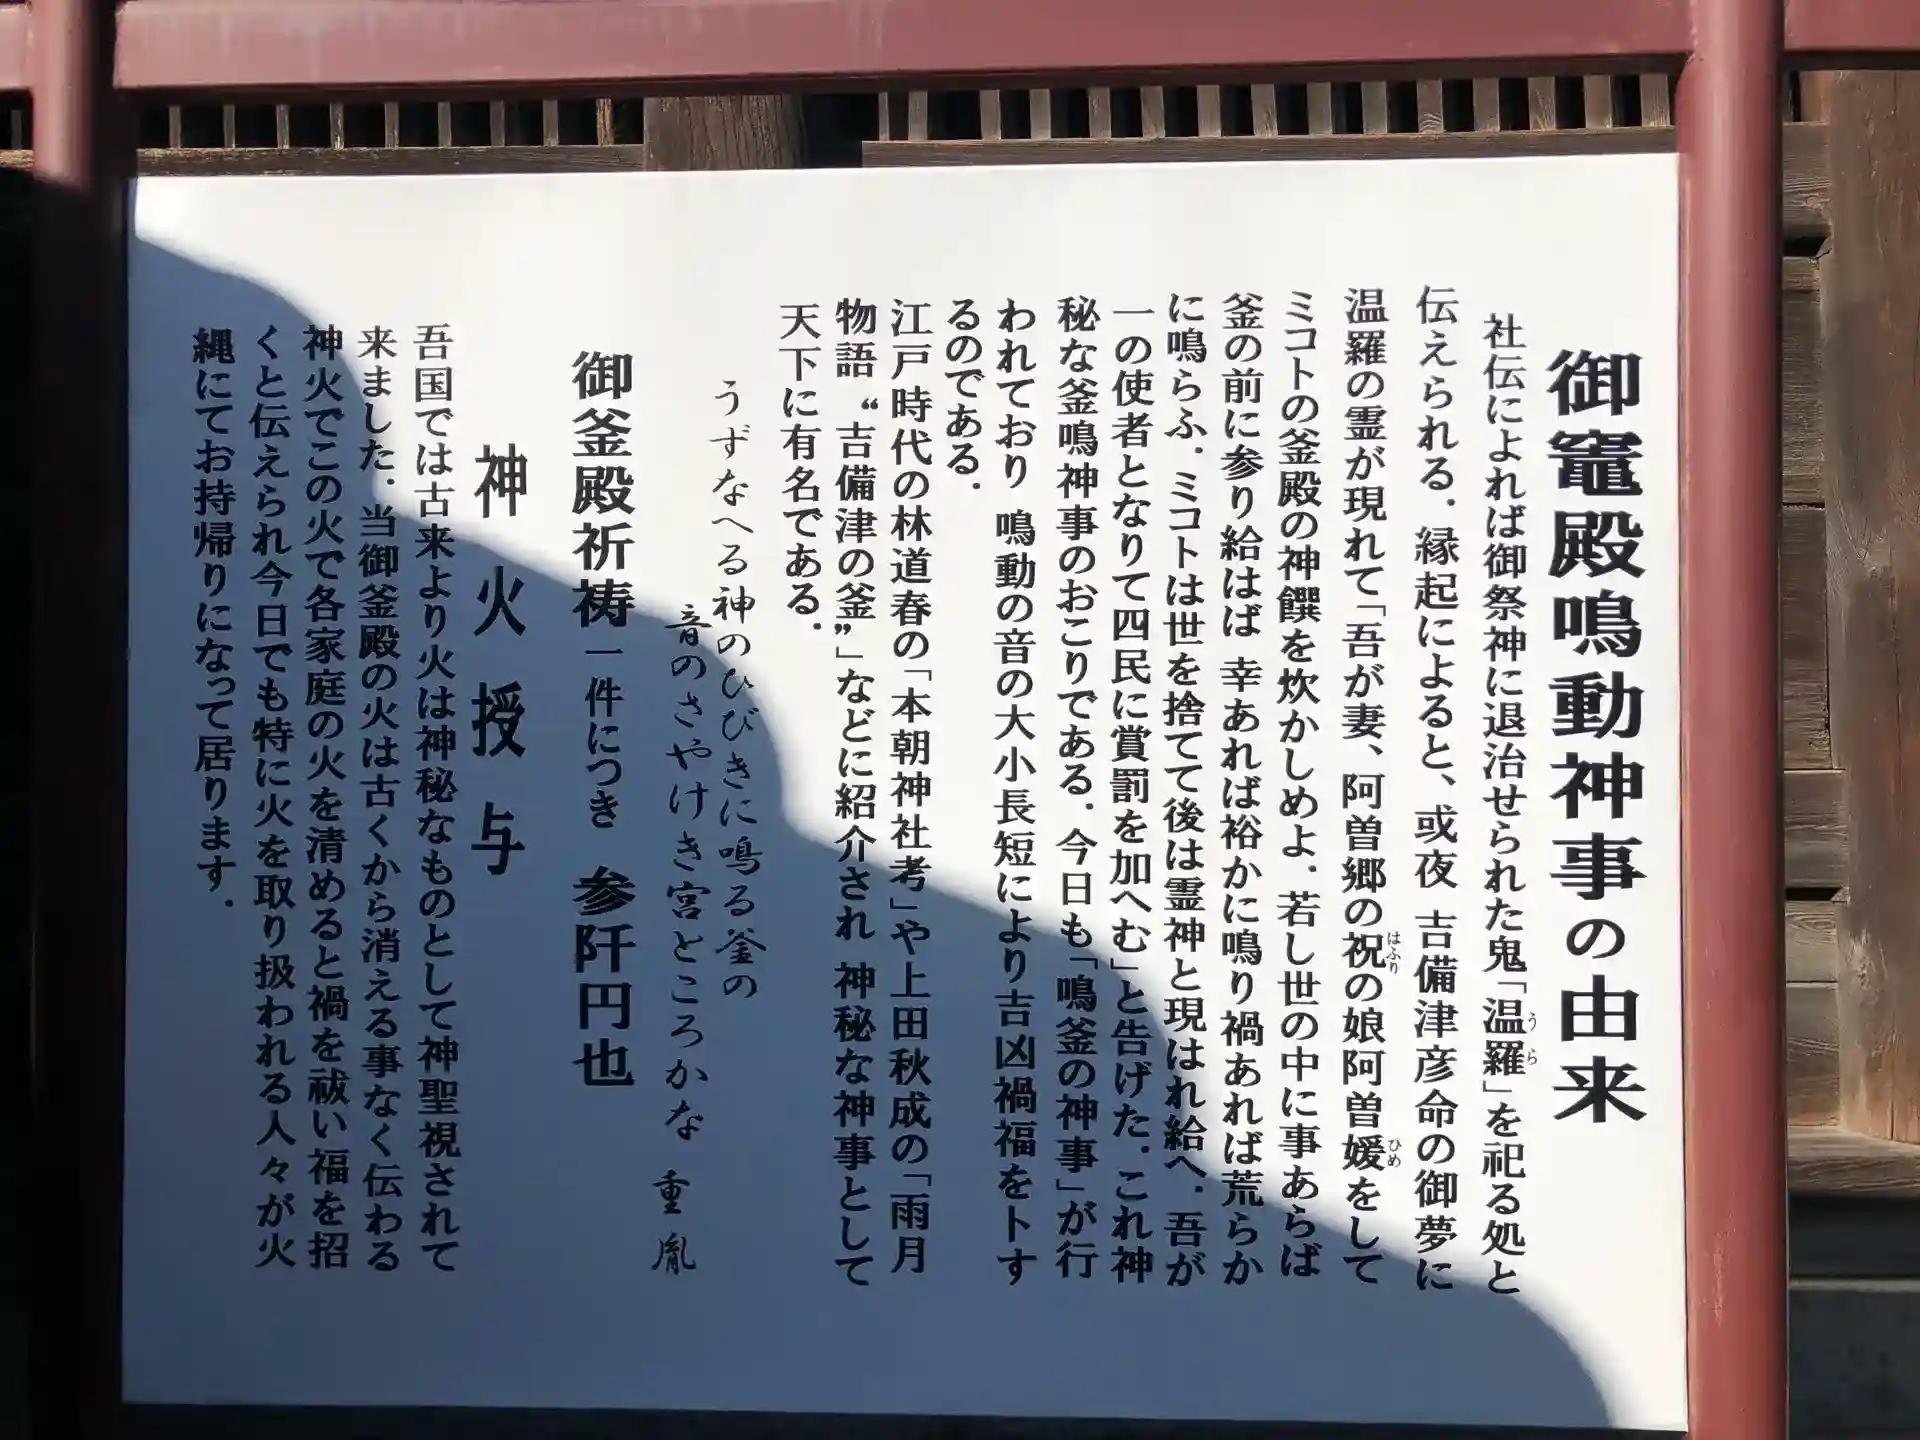 御竈殿鳴動神事の由来
社伝によれば御祭神に退治せられた鬼「温羅」を祀る処と
うら
伝えられる．縁起によると、或夜 吉備津彦命の御夢に
温羅の霊が現れて「吾が妻、阿曽郷の祝の娘阿曽媛をして
はふり
ひめ
ミコトの釜殿の神饌を炊かしめよ．若し世の中に事あらば
釜の前に参り給はば 幸あれば裕かに鳴り禍あれば荒らか
に鳴らふ．ミコトは世を捨てて後は霊神と現はれ給へ．吾が
一の使者となりて四民に賞罰を加へむ」と告げた．これ神
秘な釜鳴神事のおこりである．今日も「鳴釜の神事」が行
われており 鳴動の音の大小長短により吉凶禍福を卜す
るのである．
江戸時代の林道春の「本朝神社考」や上田秋成の「雨月
物語“吉備津の釜”」などに紹介され 神秘な神事として
天下に有名である．
うずなへる神のひびきに鳴る釜の
音のさやけき宮ところかな 重胤
御釜殿祈祷一件につき 参阡円也
神火授与
吾国では古来より火は神秘なものとして神聖視されて
来ました．当御釜殿の火は古くから消える事なく伝わる
神火でこの火で各家庭の火を清めると禍を祓い福を招
くと伝えられ今日でも特に火を取り扱われる人々が火
縄にてお持帰りになって居ります．